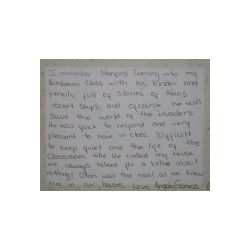 I remember Stanford Coming into my
Sunbeam Class with his binder and
pencils full of stories of Aliens
rocket ships, and ofcourse he will
save the world of the invaders.
He was quick to respond and very
pleasant to have in class. Difficult
to keep quiet and the life of the
classroom. when He called my house
we always talked for a little about
nothing! Stan was the man! as we knew
him in our house. Love Angela Gomez